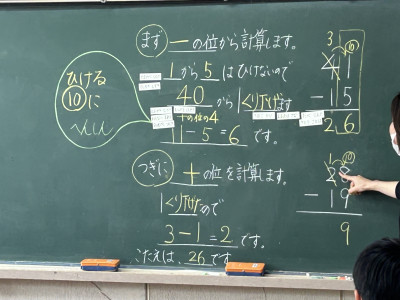 まず 一の位から計算します。
1から5はひけないので
40から1くり下げます
十の位の4
11-5=6 です。
つぎに 十の位を計算します。
1くり下げたので
3-1=2 です。
こたえは、26です
ひける
⑩に
へんしん
3 ⑩
41
-15
26
1 ⑩
28
-19
9